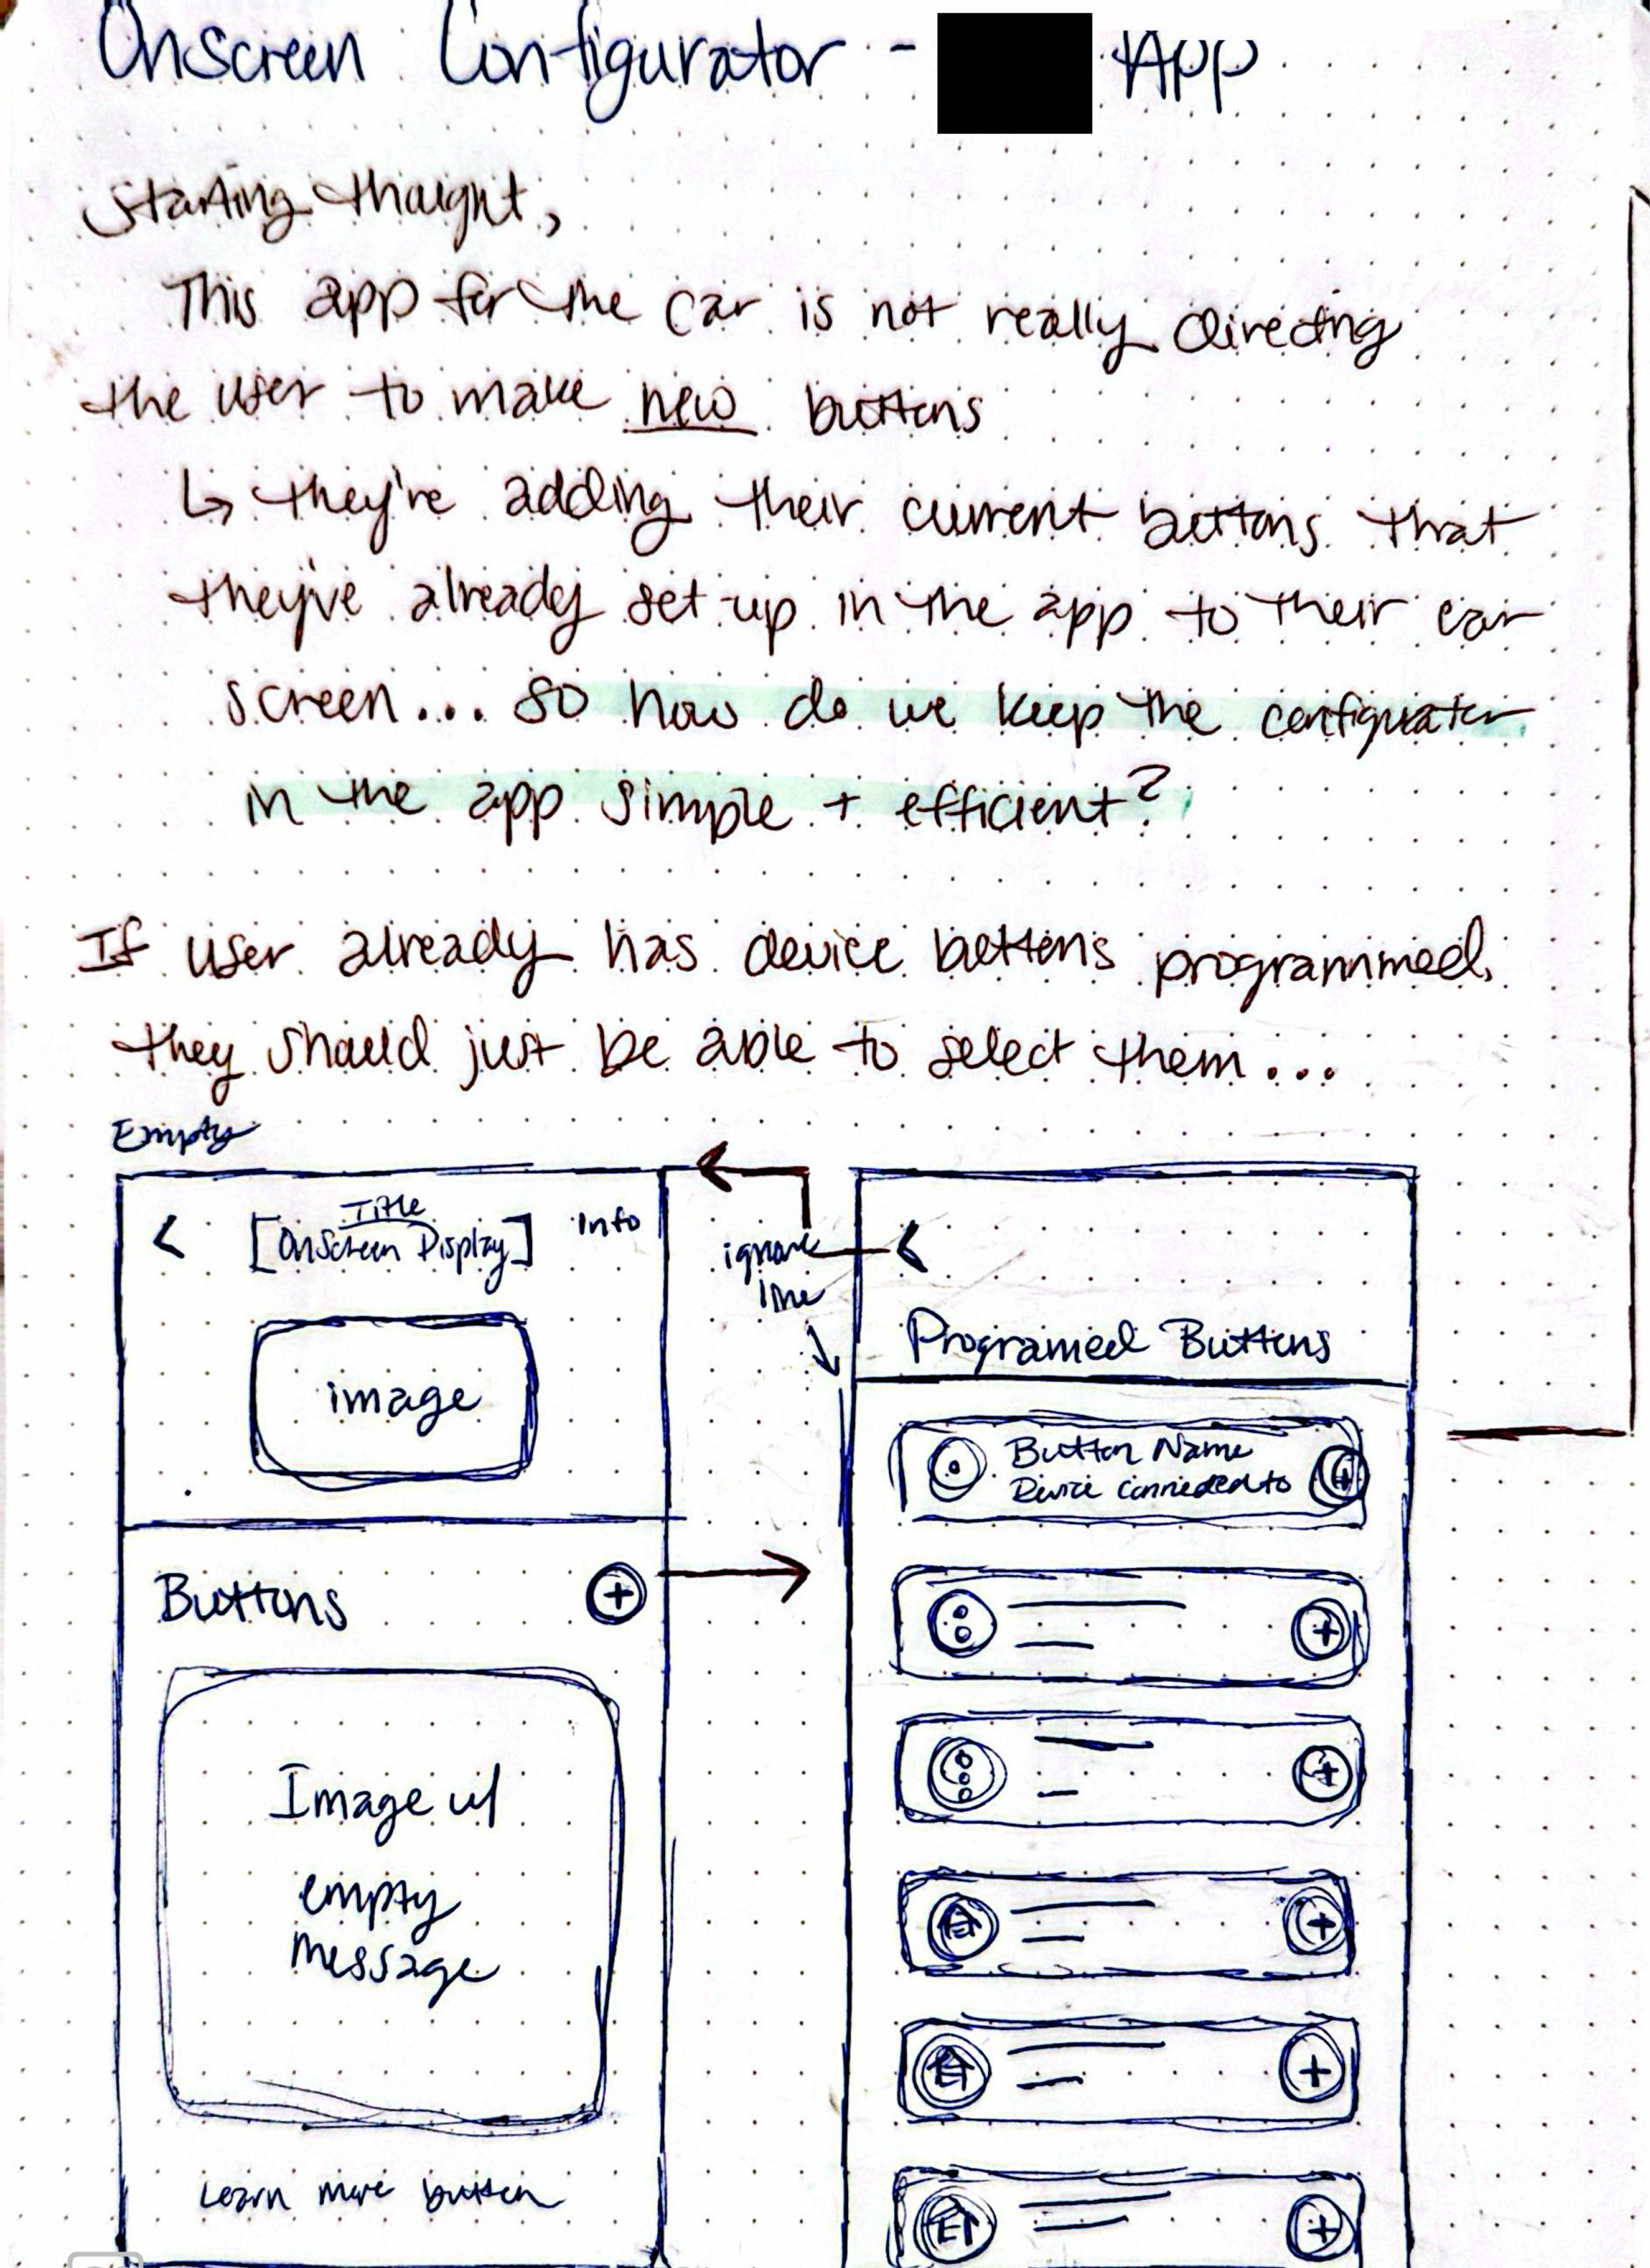 Onscreen Configurator - App
Starting thought,
This app for the car is not really directing
the user to make new buttons
↳ they're adding their current buttons that
they've already set-up in the app to their car
screen... so how do we keep the configurator
in the app simple + efficient?
If user already has device buttons programmed,
they should just be able to select them...
Empty
<
Title
[OnScreen Display]
Info
image
Buttons
+
Image w/
empty
message
Learn more button
ignore
line
<
Programed Buttons
Button Name
Device connected to
+
+
+
+
+
+